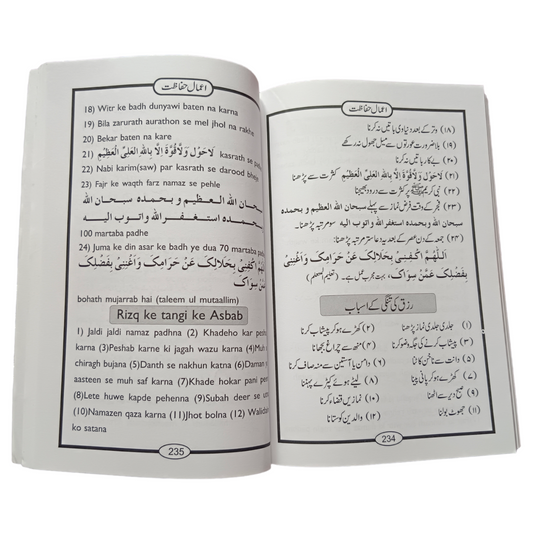 اعمال حفاظت
18) Witr ke badh dunyawi baten na karna
19) Bila zarurath aurathon se mel jhol na rakhe
20) Bekar baten na kare
21) لَاحَوْلَ وَلَاقُوَّةَ اِلَّا بِاللهِ الْعَلِيِّ الْعَظِيْمِ kasrath se
22) Nabi karim(saw) par kasrath se darood
23) Fajr ke waqth farz namaz se pehle
سبحان الله العظيم و بحمده سبحان الله
بحمده استغفر الله واتوب اليه
100 martaba padhe
24) Juma ke din asar ke badh ye dua 70 martaba
اَللّٰهُمَّ اكْفِنِيْ بِحَلَالِكَ عَنْ حَرَامِكَ وَاَغْنِنِيْ بِفَضْلِكَ
عَمَّنْ سِوَاكَ
bohath mujarrab hai (taleem ul mutaallim)
Rizq ke tangi ke Asbab
1) Jaldi jaldi namaz padhna (2) Khadeho kar
karna (3)Peshab karne ki jagah wazu karna (4)Muh
chiragh bujana (5)Danth se nakhun katna (6)Daman
aasteen se muh saf karna (7)Khade hokar pani
(8)Lete huwe kapde pehenna (9)Subah deer se
(10)Namazen qaza karna (11)Jhot bolna (12)
ko satana
235
اعمال حفاظت
(۱۸) وتر کے بعد دنیاوی باتیں نہ کرنا
(۱۹) بلاضرورت عورتوں سے میل جھول نہ رکھے
(۲۰) بے کار باتیں نہ کرنا
(۲۱) لَاحَوْلَ وَلَاقُوَّةَ اِلَّا بِاللهِ الْعَلِيِّ الْعَظِيْمِ کثرت سے پڑھنا
(۲۲) نبی کریم ﷺ پر کثرت سے درود بھیجنا
(۲۳) فجر کے وقت فرض نماز سے پہلے سبحان الله العظيم و بحمده
سبحان الله وبحمده استغفر الله واتوب اليه سو مرتبہ پڑھنا۔
(۲۴) جمعہ کے دن عصر کے بعد یہ دعا ستر مرتبہ پڑھنا
اَللّٰهُمَّ اكْفِنِيْ بِحَلَالِكَ عَنْ حَرَامِكَ وَاَغْنِنِيْ
بِفَضْلِكَ عَمَّنْ سِوَاكَ، بہت مجرب عمل ہے۔ (تعلیم المتعلم)
رزق کی تنگی کے اسباب
(۱) جلدی جلدی نماز پڑھنا (۲) کھڑے ہو کر پیشاب کرنا
(۳) پیشاب کرنے کی جگہ وضو کرنا (۴) منھ سے چراغ بجھانا
(۵) دانت سے ناخن کاٹنا (۶) دامن یا آستین سے منہ صاف کرنا
(۷) کھڑے ہو کر پانی پینا (۸) لیٹے ہوئے کپڑے پہننا
(۹) صبح دیر سے اٹھنا (۱۰) نمازیں قضاء کرنا
(۱۱) جھوٹ بولنا (۱۲) والدین کو ستانا
234